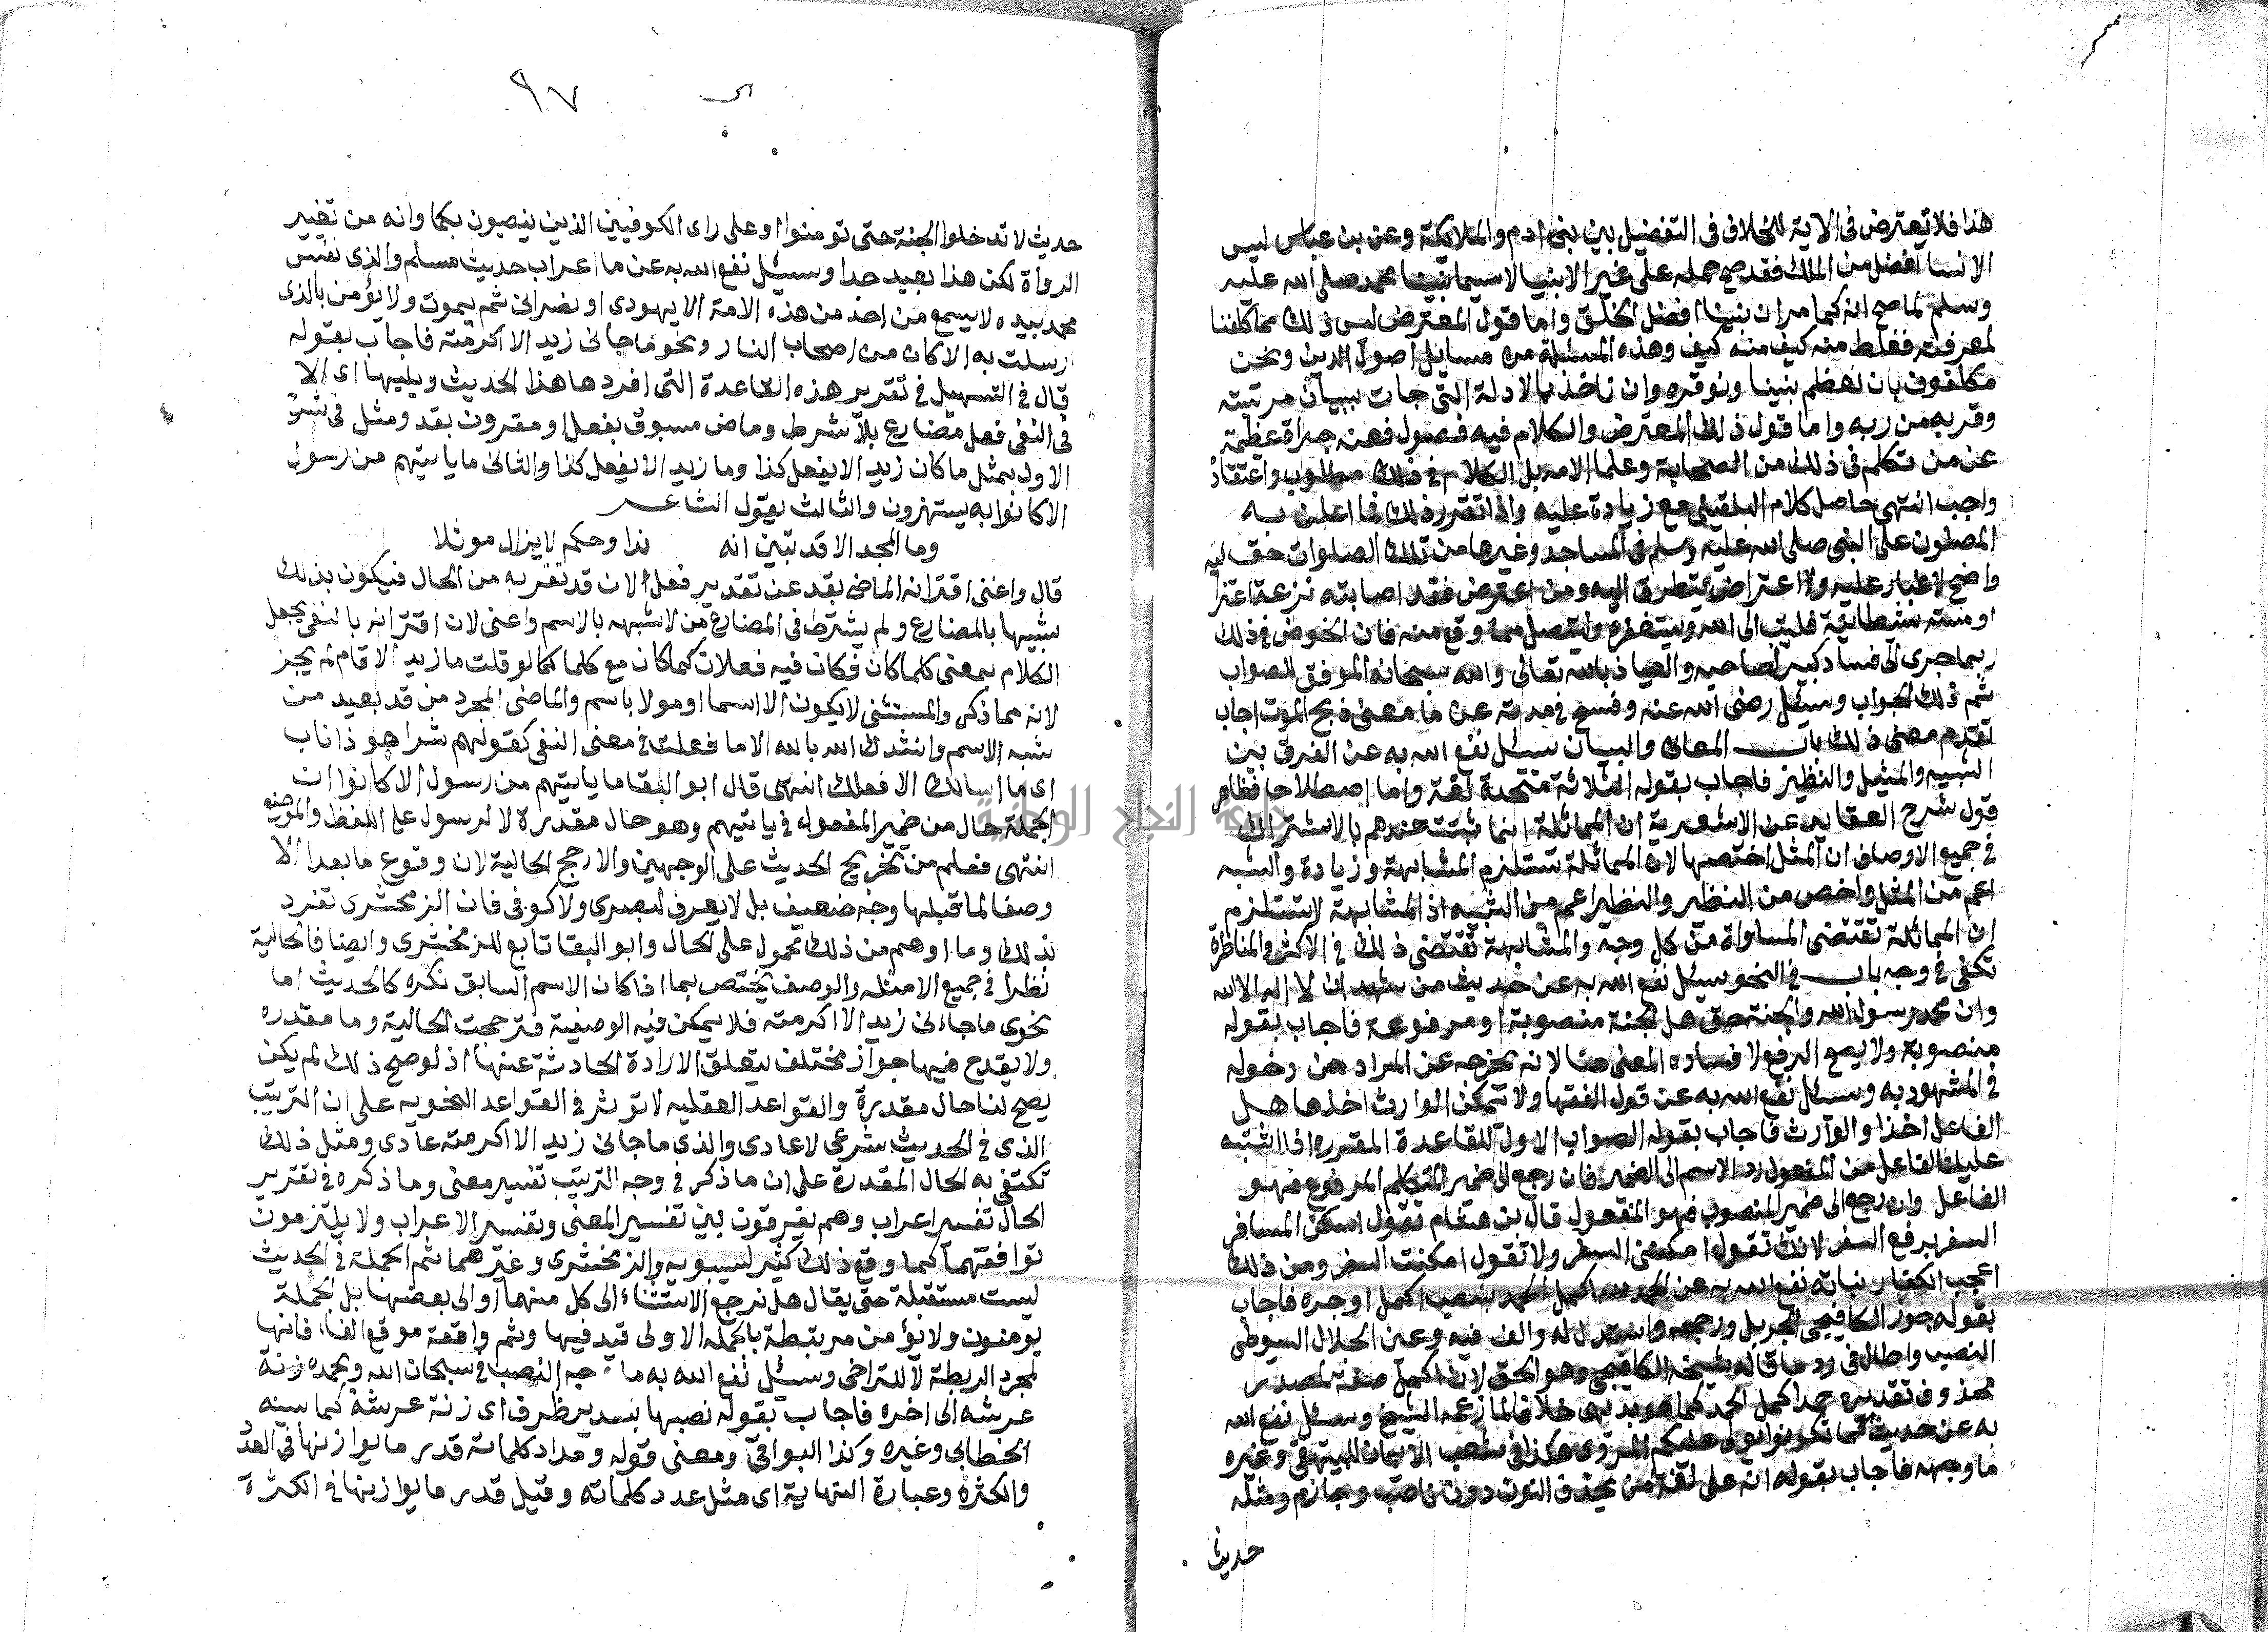 هذا فلا تعترض فى الاية للخلاف فى التفضيل بين بنى ادم والملايكة وعن بن عباس ليس
الانسا افضل من الملك فقد صح حمله على غير الانبيا لاسيما نبينا محمد صلى الله عليه
وسلم لما صح انه كما مر ان نبينا افضل الخلق واما قول المعترض ليس ذلك مما كلفنا
لمعرفته فغلط منه كيف منه كيف وهذه المسئلة من مسايل اصول الدين ونحن
مكلفون بان نعظم نبينا ونوقره وان ناخذ بالادلة التى جات ببيان مرتبته
وقربه من ربه واما قول ذلك المعترض والكلام فيه فضول فعنه جراة عظيمة
عن من تكلم فى ذلك من الصحابة وعلما الامه بل الكلام فى ذلك مطلوب واعتقاده
واجب انتهى حاصل كلام البلقينى مع زيادة عليه واذا تقرر ذلك فما اعلن به
المصلون على النبى صلى الله عليه وسلم فى المساجد وغيرها من تلك الصلوات حق
واضح لا غبار عليه ولا اعتراض يتطرق اليه ومن اعترض فقد اصابته نزعة اعتزا
او مسته شيطانية فليتب الى الله ويستغفره وليتصل مما وقع منه فان الخوض فى ذلك
ربما جرى الى فساد كبير لصاحبه والعياذ بالله تعالى والله سبحانه الموفق للصواب
ثم ذلك الجواب وسئل رضى الله عنه وفسح فى مدته عن ما معنى ذبح الموت اجاب
تقدم معنى ذلك باب المعانى والبيان سئل نفع الله به عن الفرق بين
الشبيه والمثيل والنظير فاجاب بقوله الثلاثة متحدة لغة واما اصطلاحا فظاهر
قول شرح العقايد عن الاشعرية ان المماثلة انما تثبت عندهم بالاشتراك
فى جميع الاوصاف ان المثل اخصها لان المماثلة تستلزم المشابهة وزيادة والشبه
اعم من المثل واخص من النظير والنظير اعم من الشبيه اذ المشابهة لا تستلزم
ان المماثلة تقتضى المساواة من كل وجه والمشابهة تقتضى ذلك فى الاكثر والمناظرة
تكفى فى وجه باب فى النحو سئل نفع الله به عن حديث من شهد ان لا اله الا الله
وان محمد رسول الله والجنة حق هل الجنة منصوبة او مرفوعة فاجاب بقوله
منصوبة ولا يصح الرفع لا فساده المعنى هنا لانه يخرجه عن المراد من دخوله
فى المشهود به وسئل نفع الله به عن قول الفقها ولا تمكن الوارث اخذها هل
الفاعل اخذ او الوارث فاجاب بقوله الصواب الاول للقاعدة المقرره اذا اشتبه
عليك الفاعل من المفعول رد الاسم الى الضمير فان رجع الى ضمير المتكلم المرفوع فهو
الفاعل وان رجع الى ضمير المنصوب فهو المفعول قال بن هشام تقول امكن المسافر
السفر برفع السفر لانك تقول امكننى السفر ولا تقول امكنت السفر ومن ذلك
اعجب الكفار نباته نفع الله به عن الحمد لله اكمل الحمد بنصب اكمل او جره فاجاب
بقوله جوز الكافيجى الجر بل ورجحه واستدل له والف فيه وعين الجلال السيوطى
النصب واطال فى رد ما قاله شيخه الكافيجى وهو الحق لان اكمل صفة لمصدر
محذوف تقديره حمدا اكمل الحمد كما هو بديهى خلافا لما زعمه الشيخ وسئل نفع الله
به عن حديث كما تكونوا يولى عليكم المروى هكذا فى شعب الايمان للبيهقى وغيره
ما وجهه فاجاب بقوله انه على لغة من يحذف النون دون ناصب وجازم ومثله
حديث
٩٧
حديث لا تدخلوا الجنة حتى تومنوا او على راى الكوفيين الذين ينصبون بكما وانه من تغيير
الرواة لكن هذا بعيد جدا وسئل نفع الله به عن ما اعراب حديث مسلم والذى نفس
محمد بيده لا يسمع من احد من هذه الامة الا يهودى او نصرانى ثم يموت ولا يؤمن بالذى
ارسلت به الا كان من اصحاب النار ونحو ما جانى زيد الا اكرمته فاجاب بقوله
قال فى التسهيل فى تقرير هذه القاعدة التى افردها هذا الحديث ويليها اى الا
فى النفى فعل مضارع بلا شرط وماض مسبوق بفعل او مقرون بقد ومثل فى شرح
الاول بمثل ما كان زيد الا يفعل كذا وما زيد الا يفعل كذا والثانى ما ياتيهم من رسول
الا كانوا به يستهزون والثالث بقول الشاعر
وما المجد الا قد تبين انه ندا وحكم لا يزال موثلا
قال واعنى اقترانه الماضى بقد عن تقدير فعل الان قد تقربه من الحال فيكون بذلك
شبيها بالمضارع ولم يشترط فى المضارع من لا شبهه بالاسم واعنى لان اقترانه بالنفى يجعل
الكلام بمعنى كلما كان فكان فيه فعلان كما كان مع كلما كما لو قلت ما زيد الا قام لم يجز
لانه مما ذكر والمستثنى لا يكون الا اسما او مولا باسم والماضى المجرد من قد بعيد من
شبه الاسم وانشدك الله بالله الا ما فعلت فى معنى النفى كقولهم شر اهر ذا ناب
اى ما اسالك الا فعلك انتهى قال ابو البقا ما ياتيهم من رسول الا كانوا ان
الجملة حال من ضمير المفعول فى ياتيهم وهو حال مقدرة لا لرسول على اللفظ والموضع
انتهى فعلم من تخريج الحديث على الوجهين والارجح الحالية لان وقوع ما بعد الا
وصفا لما قبلها وجه ضعيف بل لا يعرف لبصرى ولا كوفى فان الزمخشرى تفرد
بذلك وما اوهم من ذلك محمول على الحال وابو البقا تابع للزمخشرى وايضا فالحالية
نظرا فى جميع الامثله والوصف يختص بما اذا كان الاسم السابق نكره كالحديث اما
نحوى ما جاءنى زيد الا اكرمته فلا يمكن فيه الوصفية فترجحت الحالية وما مقدره
ولا يقدح فيها جواز مختلف ليتعلق الارادة الحادثة عنها اذ لو صح ذلك لم يكن
يصح لنا حال مقدرة والقواعد العقليه لا توثر فى القواعد النحويه على ان الترتيب
الذى فى الحديث شرعى لا عادى والذى ما جانى زيد الا اكرمته عادى ومثل ذلك
تكتفى به الحال المقدرة على ان ما ذكر فى وجه الترتيب تفسير معنى وما ذكره فى تقرير
الحال تفسير اعراب وهم يفرقون بين تفسير المعنى وتفسير الاعراب ولا يلتزمون
توافقهما كما وقع ذلك كثير لسيبويه والزمخشرى وغيرهما ثم الجملة فى الحديث
ليست مستقلة حتى يقال هل نرجع الاستثناء الى كل منهما او الى بعضها بل الجملة
يومنون ولا يؤمن مرتبطة بالجمله الاولى قيد فيها وثم واقعة موقع الفا فانها
لمجرد الربطة لا للتراخى وسئل نفع الله به ما وجه النصب فى سبحان الله وبحمده زنة
عرشه الى اخره فاجاب بقوله نصبها بتقدير ظرف اى زنة عرشه كما سينه
الخطابى وغيره وكذا البواقى ومعنى قوله ومداد كلماته قدر ما يوازنها فى العدد
والكثره وعبارة النهاية اى مثل عدد كلماته وقيل قدر ما يوازنها فى الكثرة
جامعة النجاح الوطنية